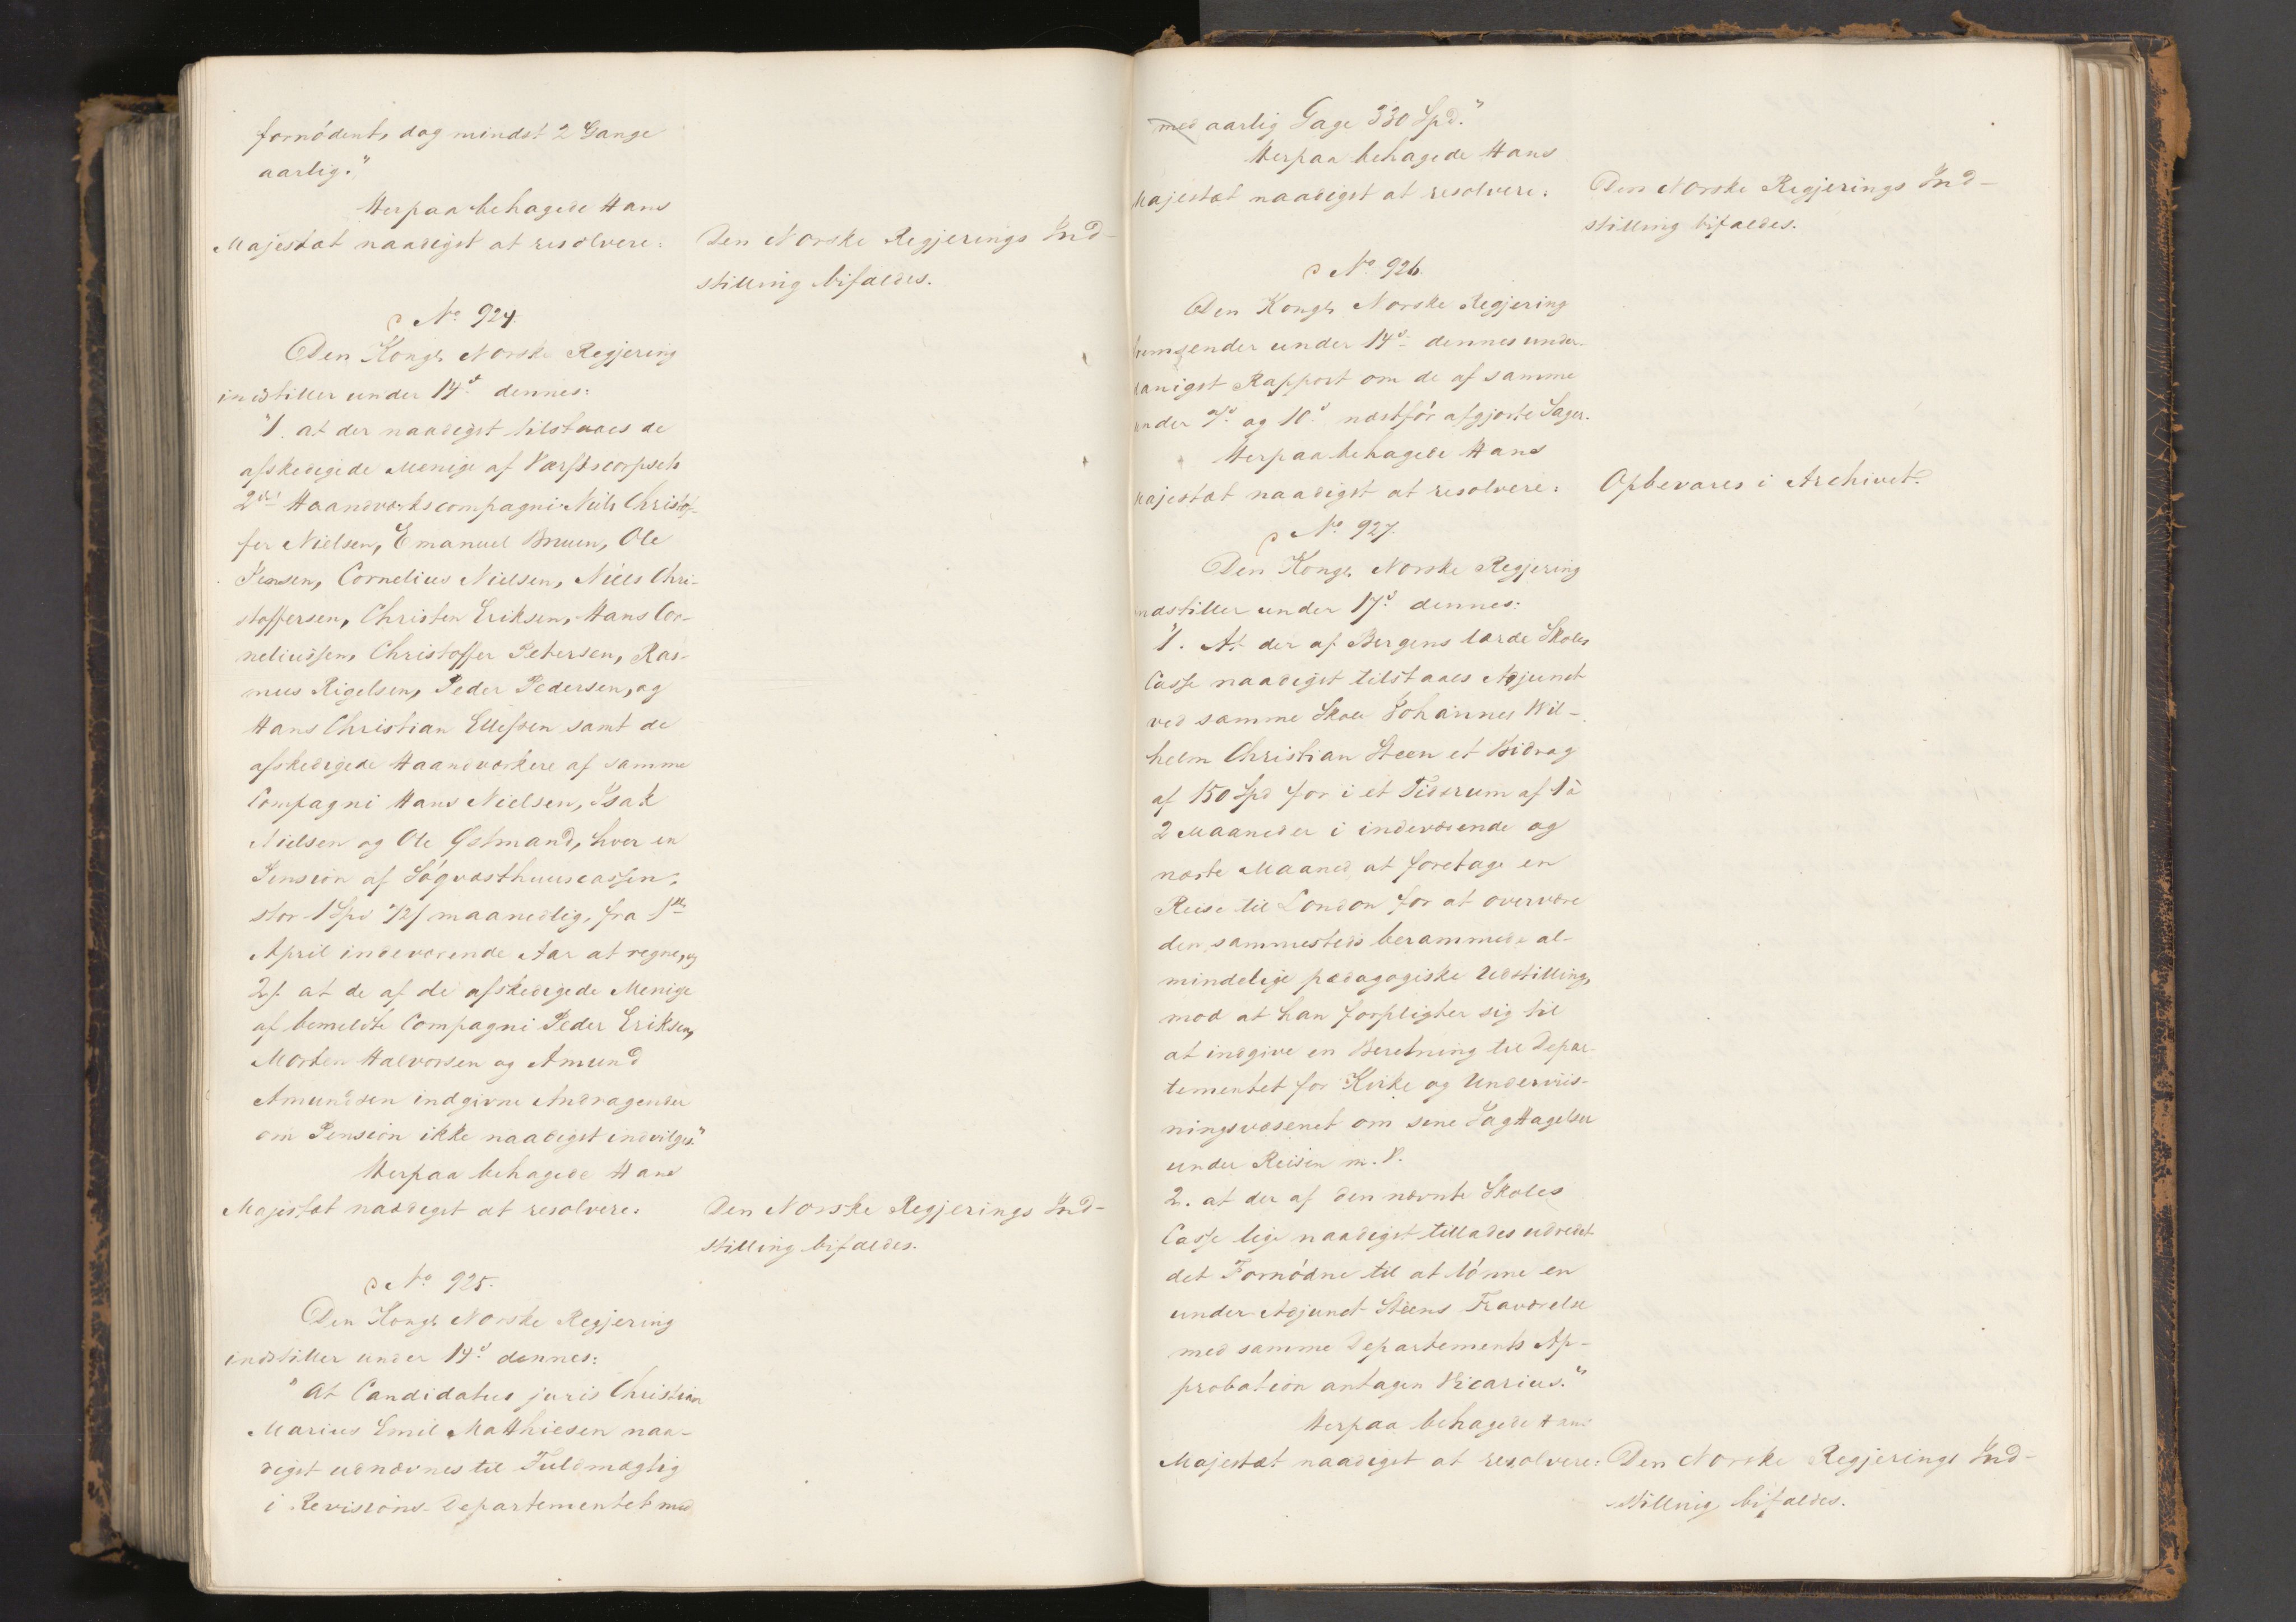 fornödent, dog mindst 2 Gange
aarlig."
Herpaa behagede Hans
Majestæt naadigst at resolvere:
Den Norske Regjerings Ind-
stilling bifaldes.
No 924.
Den Kongl. Norske Regjering
indstiller under 14d dennes:
"1. at der naadigst tilstaaes de
afskedigede Menige af Værftscorpsets
2det Haandværkscompagni Niels Christof-
fer Nielsen, Emanuel Bruun, Ole
Jensen, Cornelius Nielsen, Niels Chri-
stoffersen, Christen Eriksen, Hans Cor-
neliussen, Christoffer Petersen, Ras-
mus Rigelsen, Peder Pedersen, og
Hans Christian Ellefsen samt de
afskedigede Haandværkere af samme
Compagni Hans Nielsen, Isak
Nielsen og Ole Östmand, hver en
Pension af Söqvæsthuuscassen,
stor 1 Spd maanedlig, fra 1ste
April indeværende Aar at regne, og
2/. at de af de afskedigede Menige
af bemeldte Compagni Peder Eriksen,
Morten Halvorsen og Amund
Amundsen indgivne Andragender
om Pension ikke naadigst indvilges."
Herpaa behagede Hans
Majestæt naadigst at resolvere:
Den Norske Regjerings Ind-
stilling bifaldes.
No 925.
Den Kongl. Norske Regjering
indstiller under 14d dennes:
"At Candidatus juris Christian
Marius Emil Matthiesen naa-
digst udnævnes til Fuldmægtig
i Revisions-Departementet med
med aarlig Gage 330 Spd."
Herpaa behagede Hans
Majestæt naadigst at resolvere:
Den Norske Regjerings Ind-
stilling bifaldes.
No 926.
Den Kongl. Norske Regjering
fremsender under 14d dennes under-
danigst Rapport om de af samme
under 7d og 10d næstför afgjorte Sager.
Herpaa behagede Hans
Majestæt naadigst at resolvere:
Opbevares i Archivet.
No 927.
Den Kongl. Norske Regjering
indstiller under 17d dennes:
"1. At der af Bergens lærde Skoles
Casse naadigst tilstaaes Adjunct
ved samme Skole Johannes Wil-
helm Christian Steen et Bidrag
af 150 Spd for i et Tidsrum af 1 à
2 Maaneder i indeværende og
næste Maaned at foretage en
Reise til London for at overvære
den sammesteds berammede al-
mindelige pædagogiske Udstilling,
mod at han forpligter sig til
at indgive en Beretning til Depar-
tementet for Kirke og Underviis-
ningsvæsenet om sine Iagttagelser
under Reisen m. V.
2. at der af den nævnte Skoles
Casse lige naadigst tillades udredet
det Fornödne til at lönne en
under Adjunct Steens Fraværelse
med samme Departements Ap-
probation antagen Vicarius."
Herpaa behagede Hans
Majestæt naadigst at resolvere:
Den Norske Regjerings Ind-
stilling bifaldes.